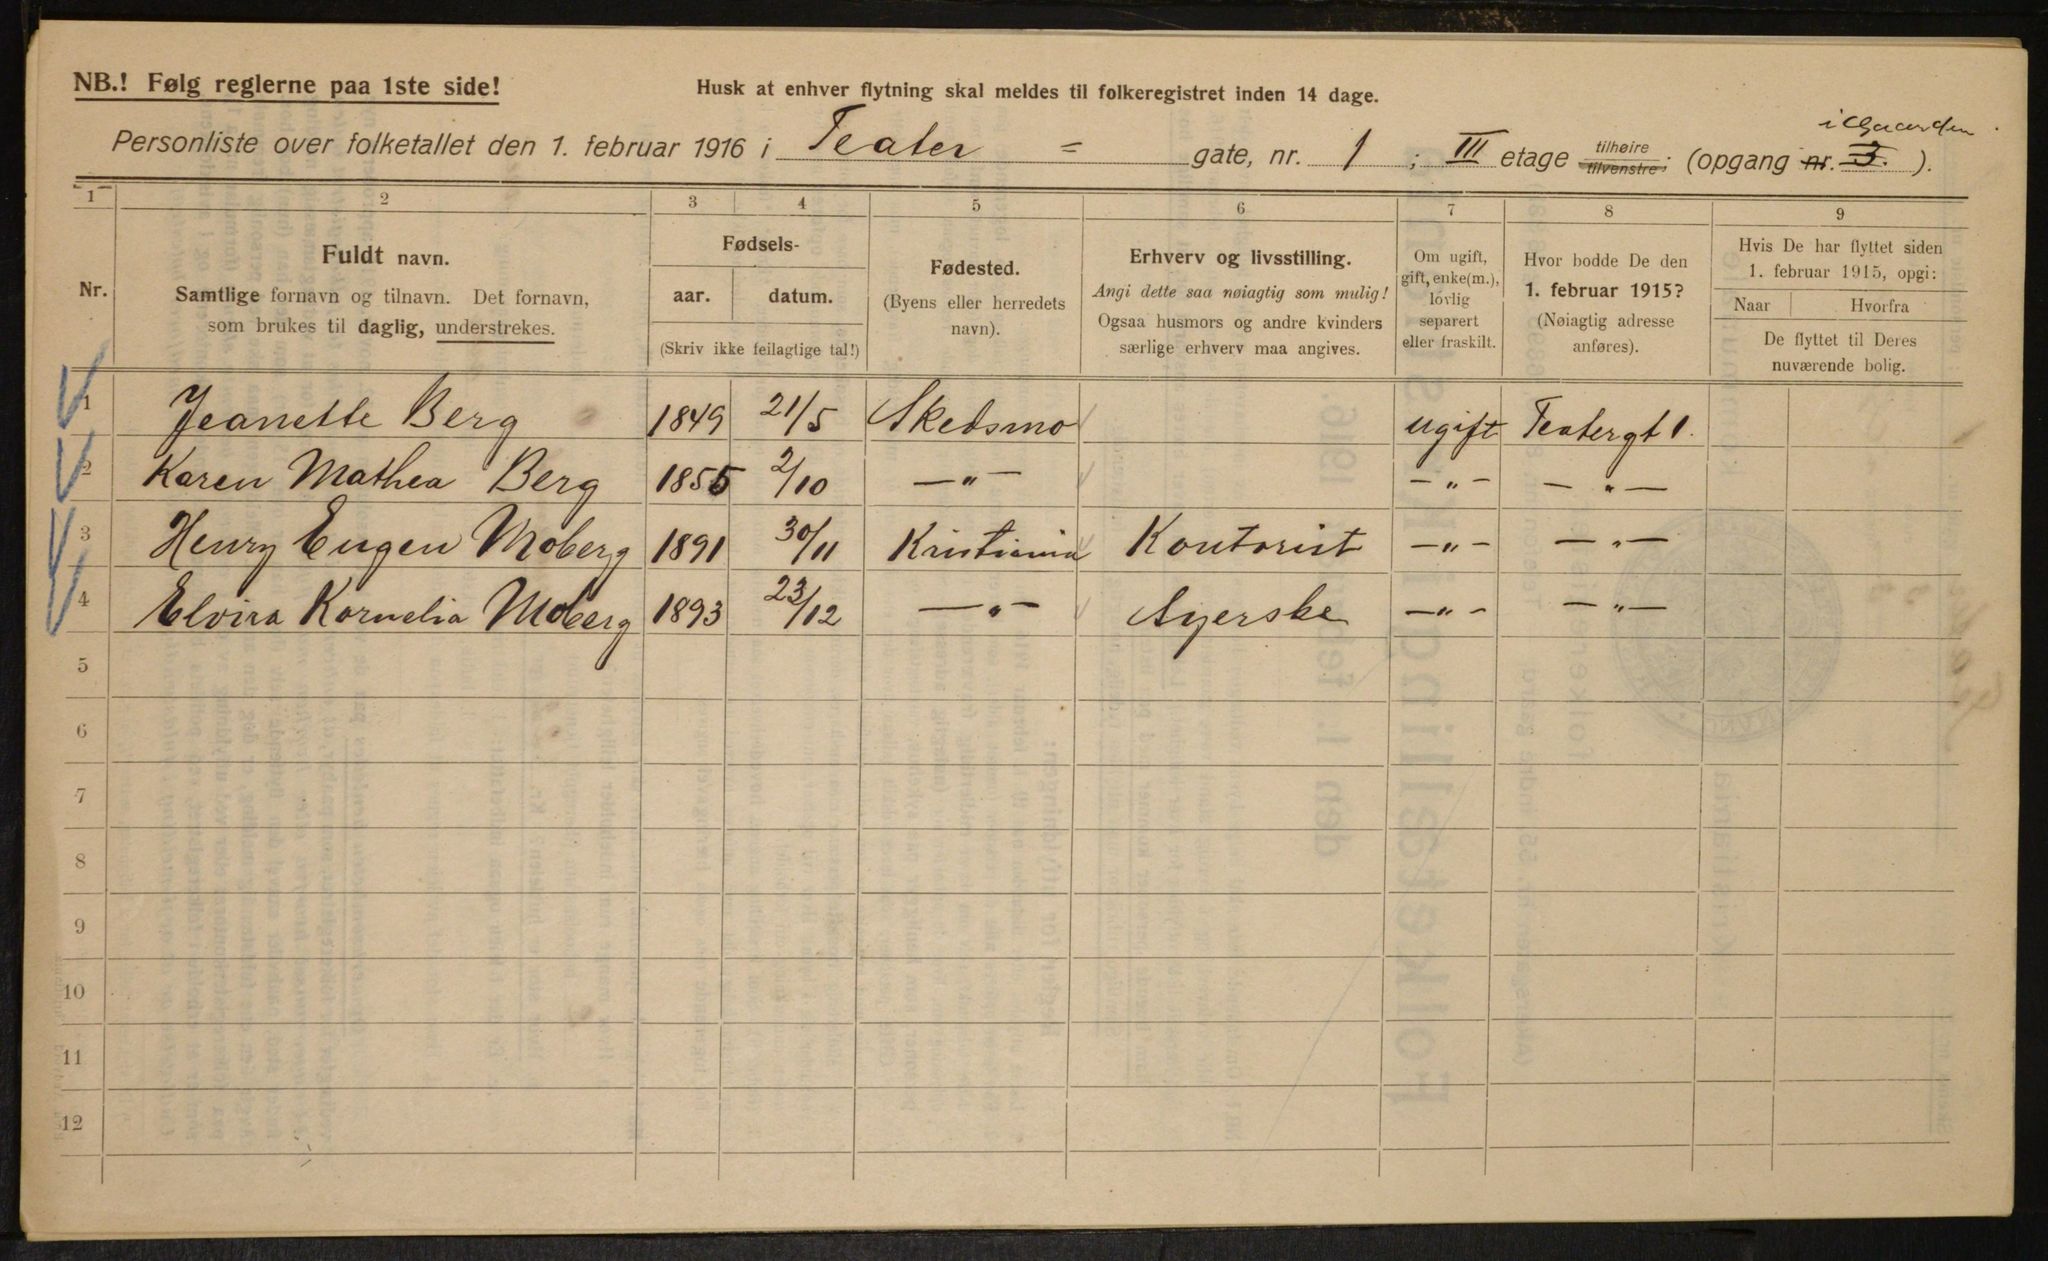 NB.! Følg reglerne paa 1ste side!
Husk at enhver flytning skal meldes til folkeregistret inden 14 dage.
i Gaarden
Personliste over folketallet den 1. februar 1916 i Teater = gate, nr. 1 ; III etage tilhøire tilvenstre; (opgang nr. 3.).
1 2 3 4 5 6 7 8 9
Nr.
Fuldt navn.
Samtlige fornavn og tilnavn. Det fornavn,
som brukes til daglig, understrekes.
Fødsels-
aar. datum.
(Skriv ikke feilagtige tal!)
Fødested.
(Byens eller herredets
navn).
Erhverv og livsstilling.
Angi dette saa nøiagtig som mulig!
Ogsaa husmors og andre kvinders
særlige erhverv maa angives.
Om ugift,
gift, enke(m.),
lovlig
separert
eller fraskilt.
Hvor bodde De den
1. februar 1915?
(Nøiagtig adresse
anføres).
Hvis De har flyttet siden
1. februar 1915, opgi:
Naar Hvorfra
De flyttet til Deres
nuværende bolig.
1 Jeanette Berg 1849 21/5 Skedsmo ugift Teatergt 1.
2 Karen Mathea Berg 1855 2/10 —"— —"— —"—
3 Henry Eugen Moberg 1891 30/11 Kristiania Kontorist —"— —"—
4 Elvira Kornelia Moberg 1893 23/12 —"— Syerske —"— —"—
5
6
7
8
9
10
11
12